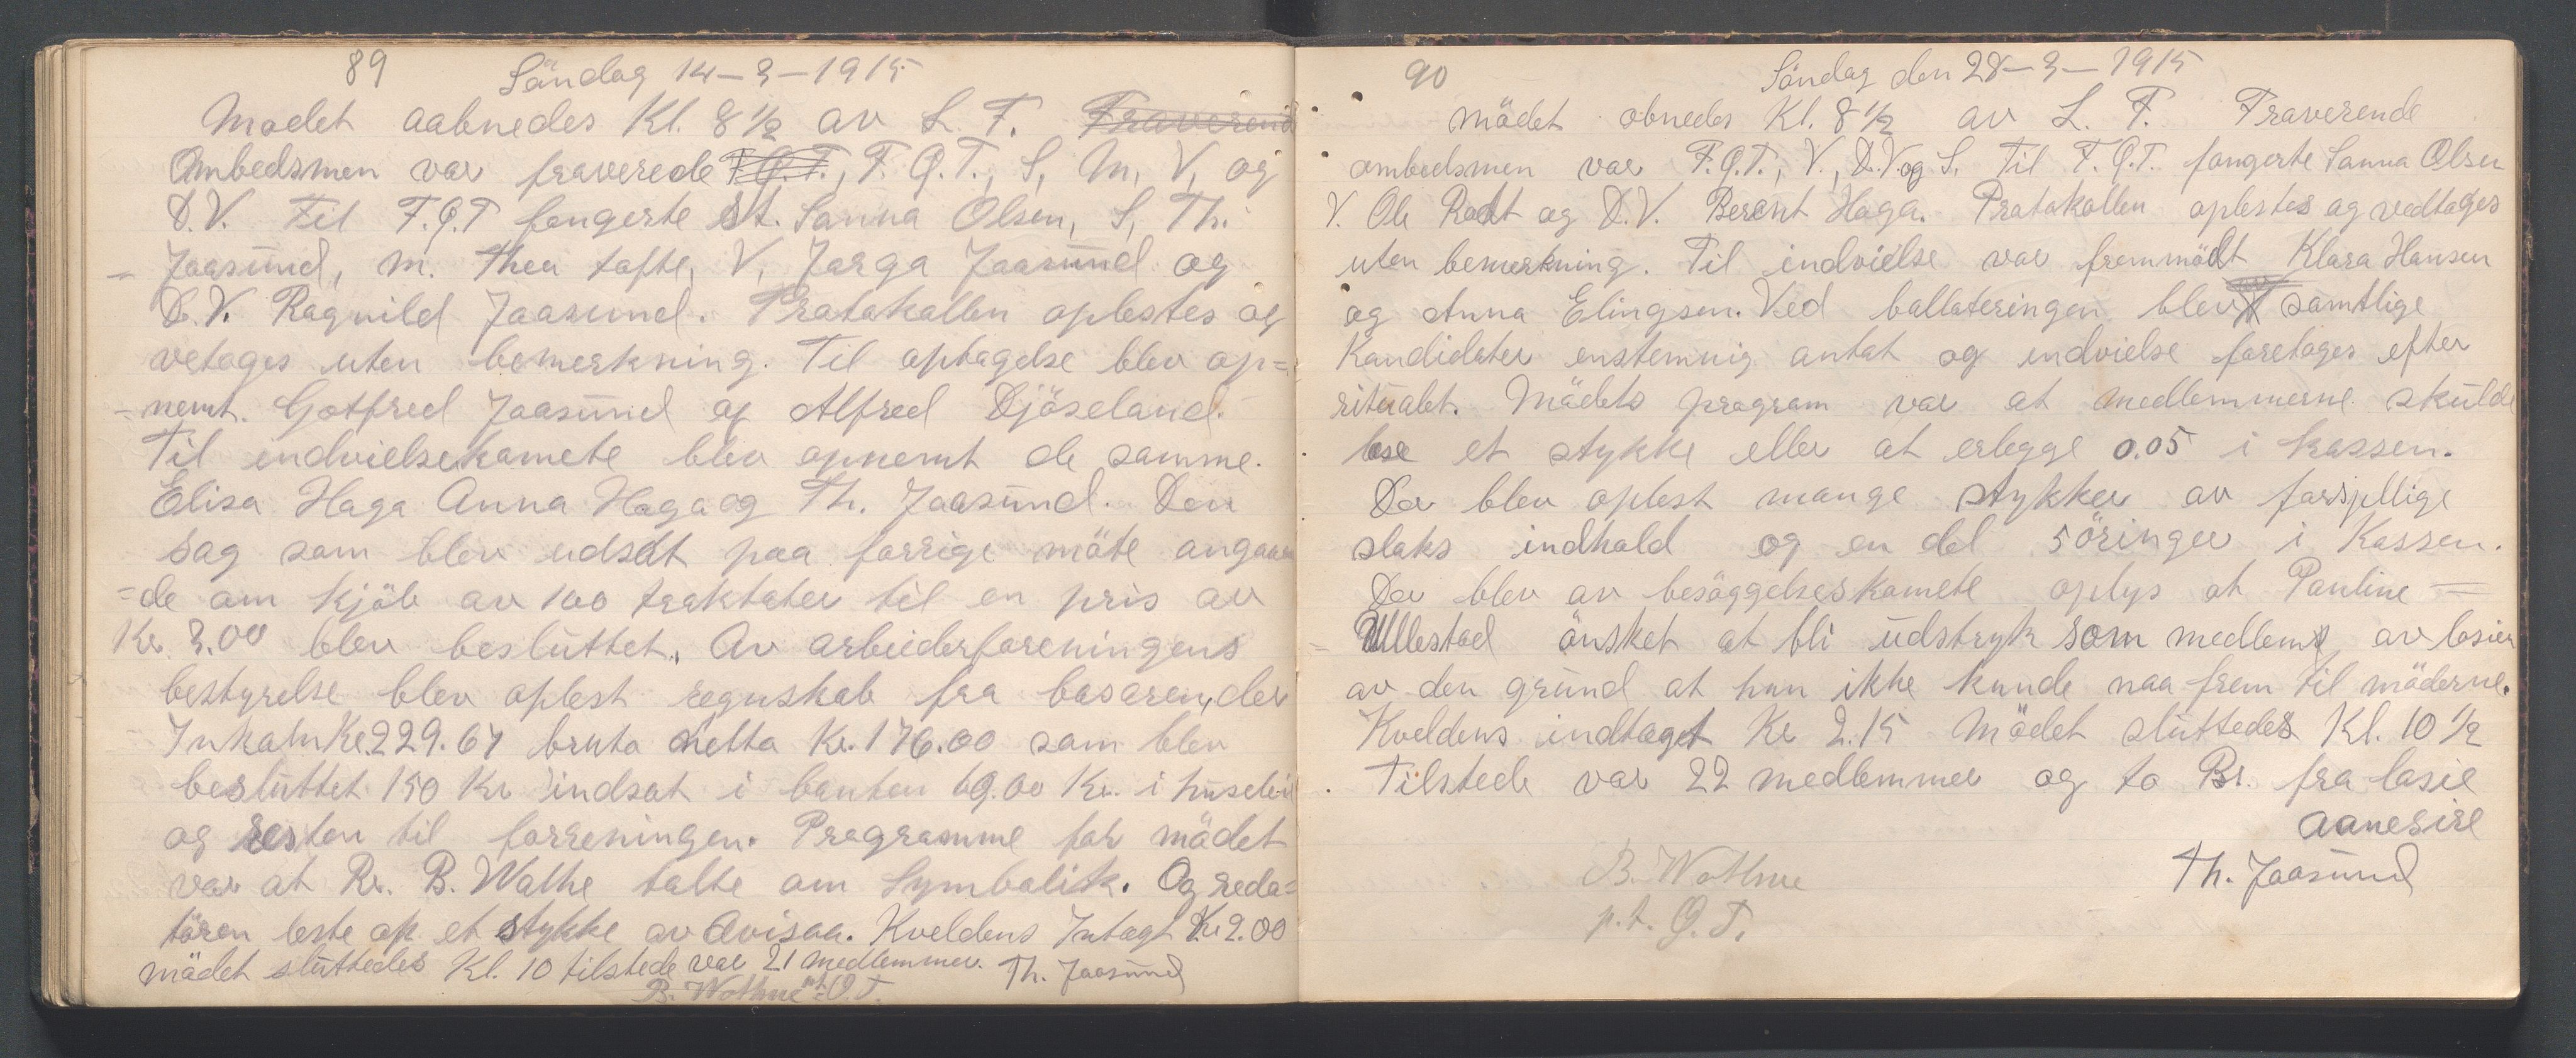 89
Söndag 14-3-1915
Mødet aabnedes Kl. 8 1/2 av L. T. Fraverend
Ombedsmen var fraverede F.Q.T., F.Q.T., S, M, V, og
D.V. Til F.Q.T fongerte St. Sanna Olsen, S, Th.
- Jaasund, M. Thea Tofte, V, Jarga Jaasund og
D.V. Ragnild Jaasund. Protokollen oplestes og
vetoges uten bemerkning. Til optagelse blev op=
=nemt. Gotfred Jaasund og Alfred Djöseland.
Til indvielsekomete blev opnemt de samme.
Elisa Haga Anna Haga og Th. Jaasund. Den
sag som blev udsat paa forrige möte angaaen
=de om kjöb av 100 traktater til en pris av
Kr. 3.00 blev besluttet. Av arbeiderforeningens
bestyrelse blev oplest regnskab fra basaren, der
Inkom Kr. 229.67 bruto netto Kr. 176.00 som blev
besluttet 150 Kr indsat i banken 69.00 Kr. i
og resten til forreningen. Programme for mödet
var at Br. B. Wathe talte om Symbolik. Og reda=
tören leste op et stykke av Avisaa. Kveldens Intægt Kr 2.00
mödet sluttedes Kl. 10 tilstede var 21 medlemmer. Th. Jaasund
B. Wathne pt. Q.T.
90
Söndag den 28-3-1915
mödet obnedes Kl. 8 1/2 av L. T. Fraverende
ombedsmen var F.Q.T., V., D.V. og S. Til F.Q.T. fongerte Sanna Olsen
V. Ole Rodt og D.V. Berent Haga. Protokollen oplestes og vedtoges
uten bemerkning. Til indvielse var fremmödt Klara Hansen
og Anna Elingsen. Ved ballateringen blev samtlige
Kandidater enstemmig antat og indvielse foretoges efter
ritualet. Mödets program var at medlemmerne skulde
lese et stykke eller at erlegge 0.05 i kassen.
Der blev oplest mange stykker av forsjellige
slaks indhold og en del 5 öringer i Kassen.
Der blev av besöggelseskomete oplys at Pauline =
= Ullestad önsket at bli udstryk som medlem av losien
av den grund at hun ikke kunde naa frem til möderne.
Kveldens indtaget Kr 2.15 Mödet sluttedes Kl. 10 1/2
Tilstede var 22 medlemmer og to Br. fra losie
Aanesire
Th. Jaasund
B. Wathne
p.t. Q.T.